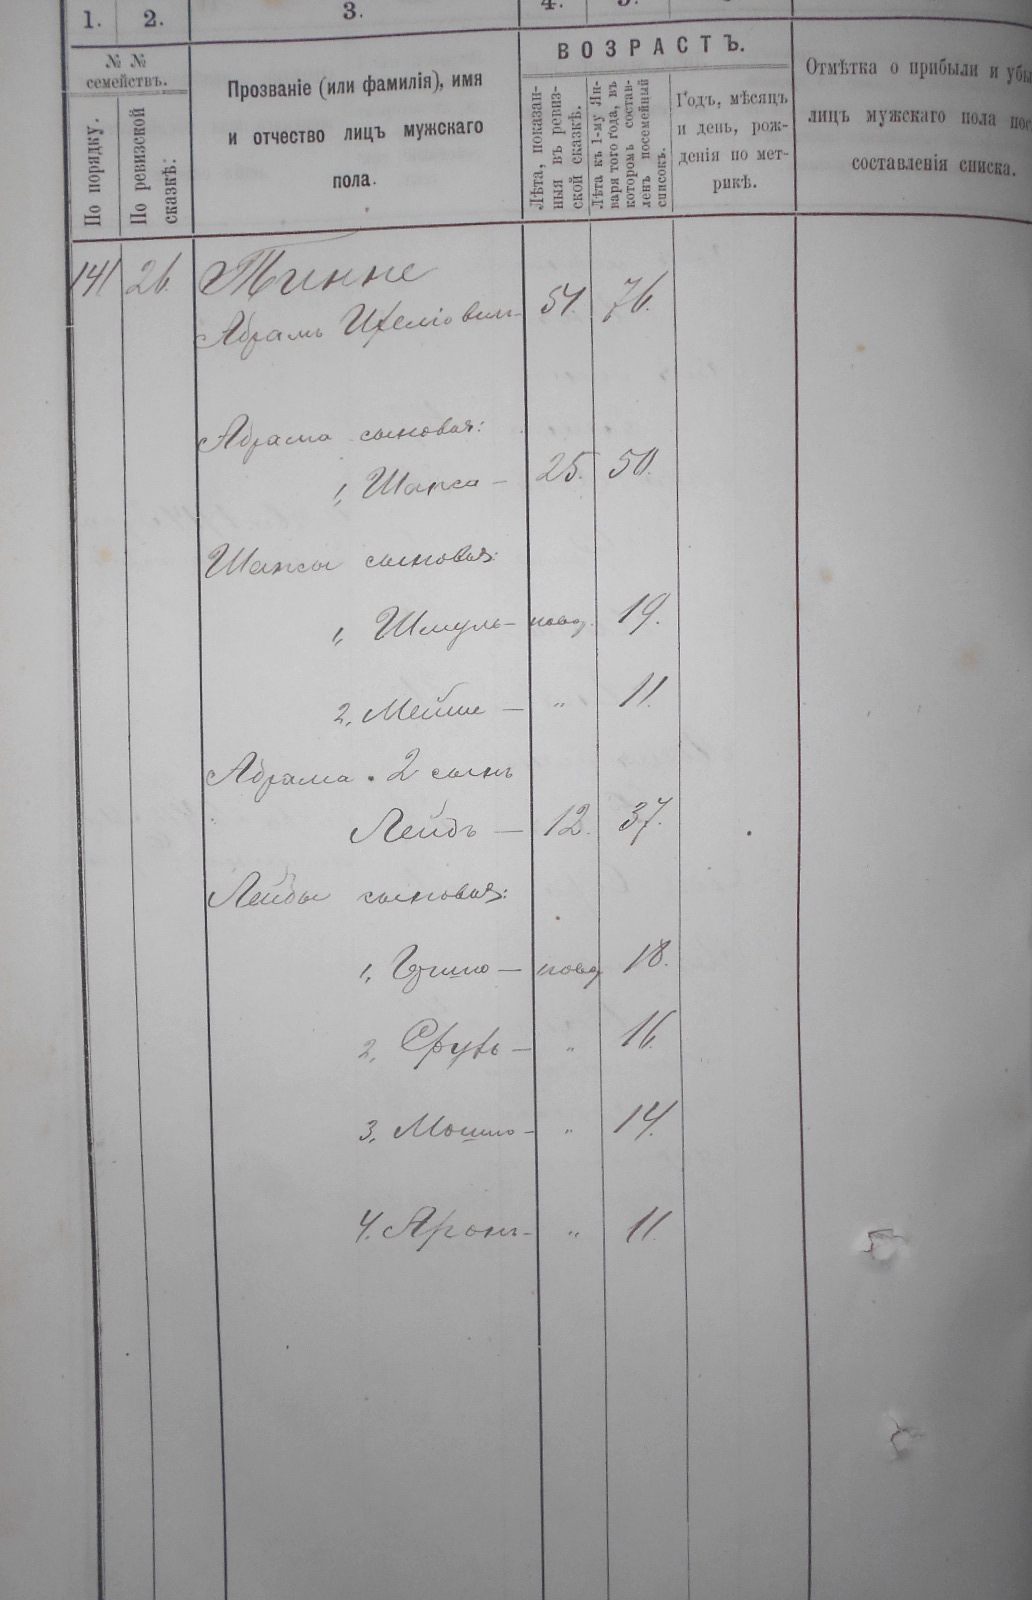 1. 2. 3. 4. 5.
№ № семействъ.
По порядку.
По ревизской сказкѣ:
Прозваніе (или фамилія), имя
и отчество лицъ мужскаго
пола.
ВОЗРАСТЪ.
Лѣта, показан-
ныя въ ревиз-
ской сказкѣ.
Лѣта къ 1-му Ян-
варя того года, въ
которомъ состав-
ленъ посемейный
списокъ.
Годъ, мѣсяцъ
и день, рож-
денія по мет-
рикѣ.
Отмѣтка о прибыли и убы
лицъ мужскаго пола пос
составленія списка.
141 26. Тинне
Абрамъ 51. 76.
Абрама сыновья:
1, Шапса – 25. 50.
Шапсы сыновья:
1, Шмуль – новор. 19.
2, Мейше – " 11.
Абрама . 2 сынъ
Лейбъ – 12. 37.
Лейбы сыновья:
1, – новор 18.
2, – " 16.
3, Мошко – " 14.
4. Аронъ – " 11